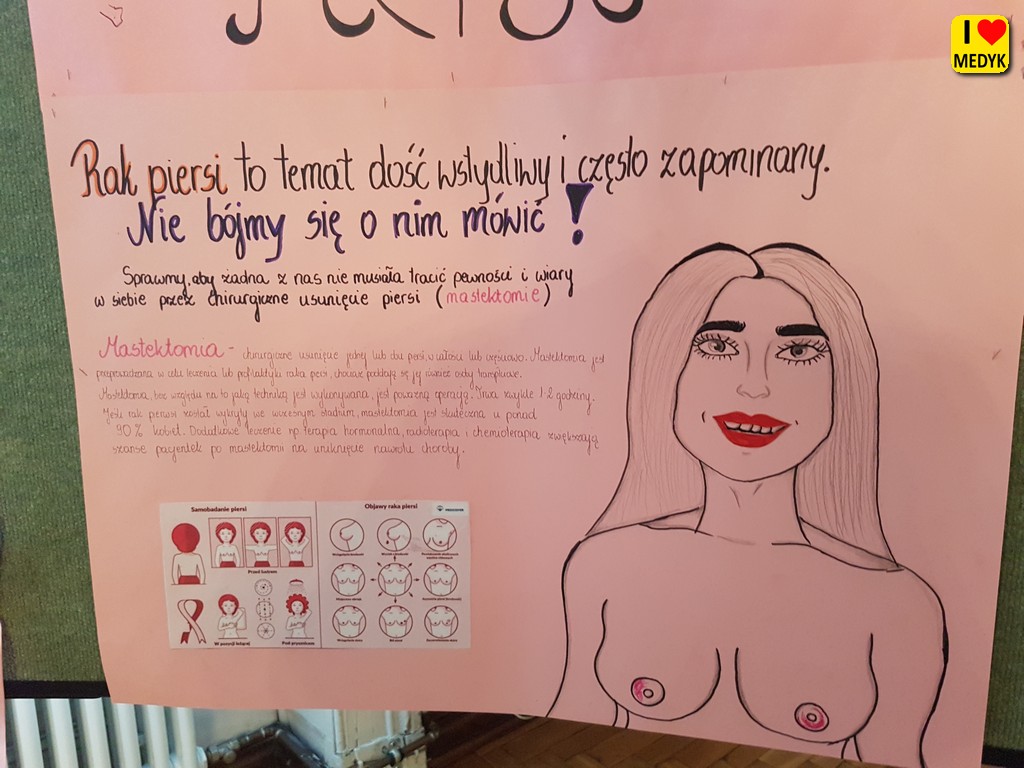 I ❤ MEDYK
Rak piersi to temat dość wstydliwy i często zapominany.
Nie bójmy się o nim mówić!
Sprawmy, aby żadna z nas nie musiała tracić pewności i wiary
w siebie przez chirurgiczne usunięcie piersi (mastektomie)
Mastektomia - chirurgiczne usunięcie jednej lub obu piersi, w całości lub częściowo. Mastektomia jest
przeprowadzana w celu leczenia lub profilaktyki raka piersi, chociaż poddają się jej również osoby transpłciowe.
Mastektomia, bez względu na to jaką techniką jest wykonywana, jest poważną operacją. Trwa zwykle 1-2 godziny.
Jeśli rak piersi został wykryty we wczesnym stadium, mastektomia jest skuteczna u ponad
90% kobiet. Dodatkowe leczenie np. terapia hormonalna, radioterapia i chemioterapia zwiększają
szanse pacjentek po mastektomii na uniknięcie nawrotu choroby.
Samobadanie piersi
Przed lustrem
W pozycji leżącej
Pod prysznicem
Objawy raka piersi